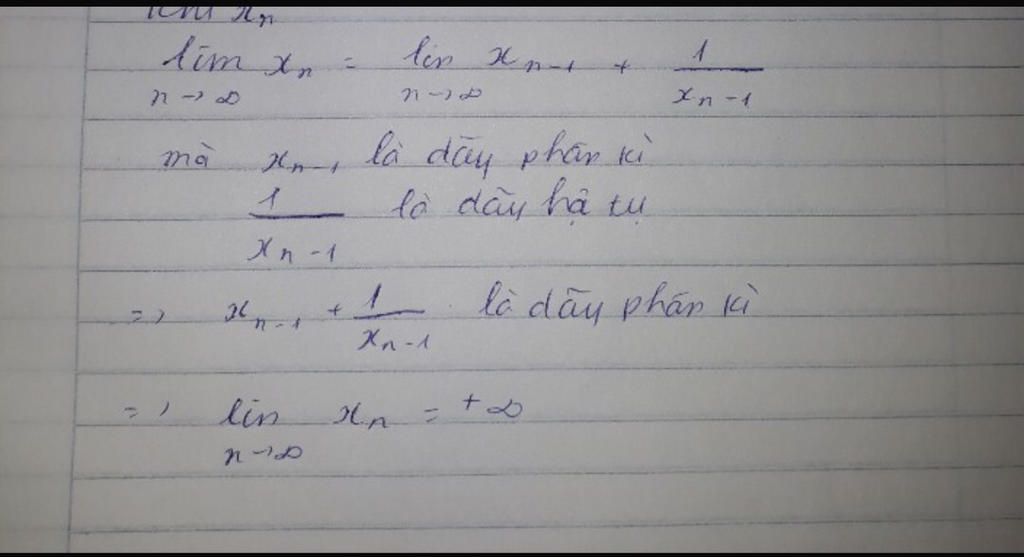 lim xₙ
lim xₙ = lin xₙ₋₁ + 1/xₙ₋₁
n→∞ n→∞
mà xₙ₋₁ là dãy phân kì
1/xₙ₋₁ là dãy hội tụ
=> xₙ₋₁ + 1/xₙ₋₁ là dãy phân kì
=> lin xₙ = +∞
n→∞